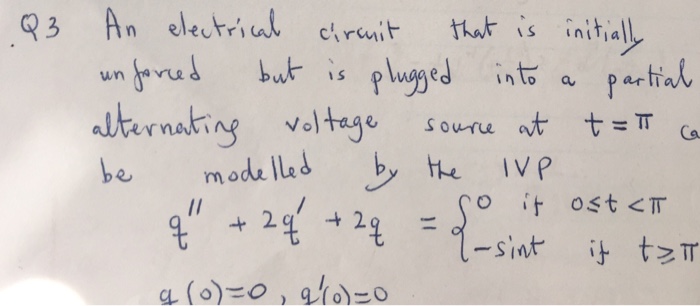 Q3 An electrical circuit that is initially
unforced but is plugged into a partial
alternating voltage source at t = π ca
be modelled by the IVP
q'' + 2q' + 2q = { 0 if 0 ≤ t < π
-sint if t ≥ π
q(0)=0, q'(0)=0